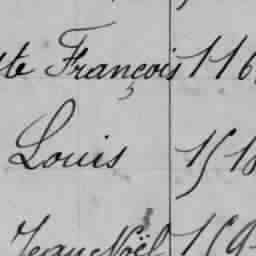 te François 116
Louis 151
Jean Noël 159